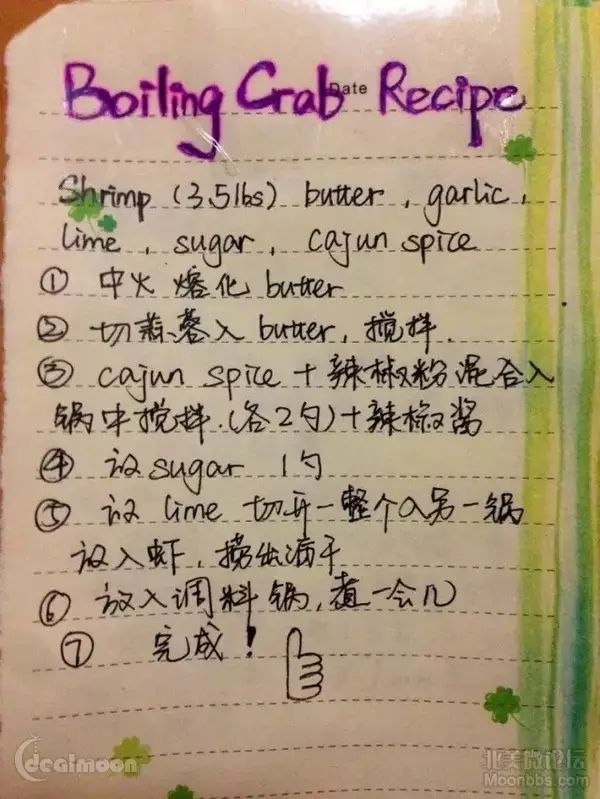 Date
Boiling Crab Recipe
Shrimp (3.5lbs) butter, garlic,
lime, sugar, cajun spice
① 中火熔化 butter
② 切蒜蓉入 butter, 搅拌.
③ cajun spice + 辣椒粉混合入
锅中搅拌.(各2勺)+辣椒酱
④ 放 sugar 1勺
⑤ 放 lime 切开一整个入另一锅
放入虾, 捞出滴干
⑥ 放入调料锅, 煮一会儿
⑦ 完成!
dealmoon
北美微论坛
Moonbbs.com